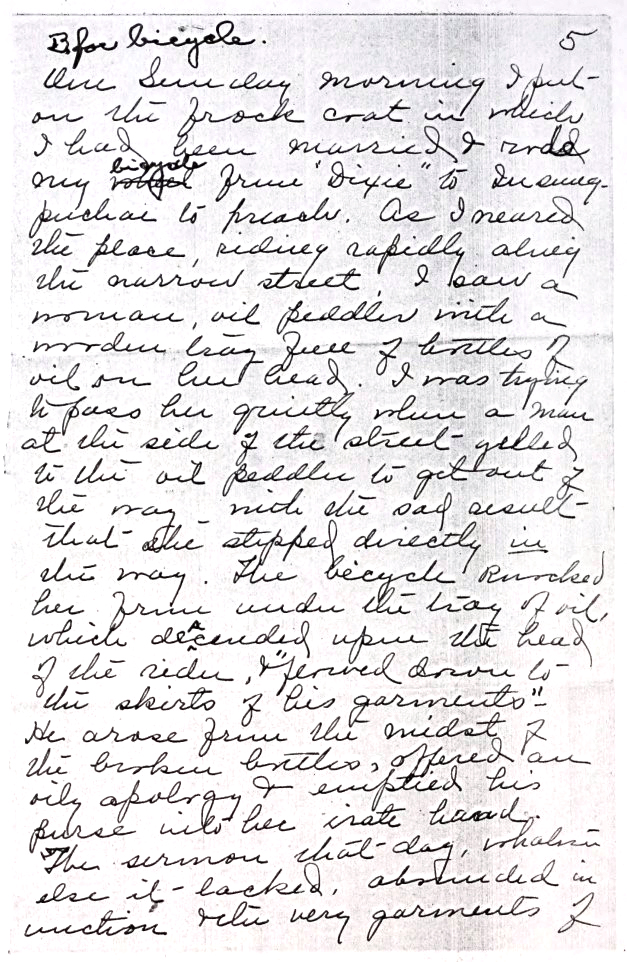 B for bicycle. 5
One Sunday morning I put
on the frock coat in which
I had been married & rode
bicycle
my from "Dixie" to Insung-
puchai to preach. As I neared
the place, riding rapidly along
the narrow street, I saw a
woman, oil peddler with a
wooden tray full of bottles of
oil on her head. I was trying
to pass her quietly when a man
at the side of the street yelled
to the oil peddler to get out of
the way with the sad result
that she stepped directly in
the way. The bicycle knocked
her from under the tray of oil,
which descended upon the head
of the rider, & "flowed down to
the skirts of his garments"-
He arose from the midst of
the broken bottles, offered an
oily apology & emptied his
purse into her irate hand.
The sermon that day, whatever
else it lacked, abounded in
unction & the very garments of